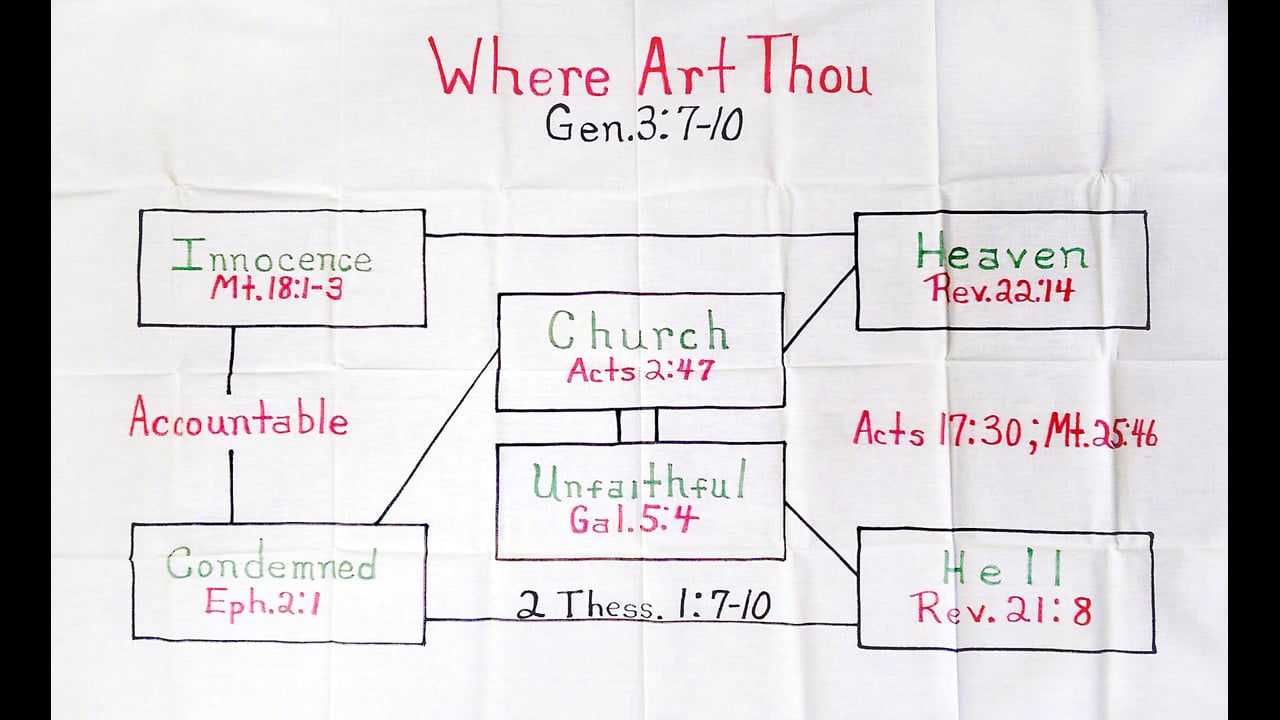 Where Art Thou
Gen.3:7-10
Innocence
Mt.18:1-3
Heaven
Rev.22:14
Church
Acts 2:47
Accountable
Acts 17:30; Mt.25:46
Unfaithful
Gal.5:4
Condemned
Eph.2:1
2 Thess. 1:7-10
Hell
Rev. 21:8